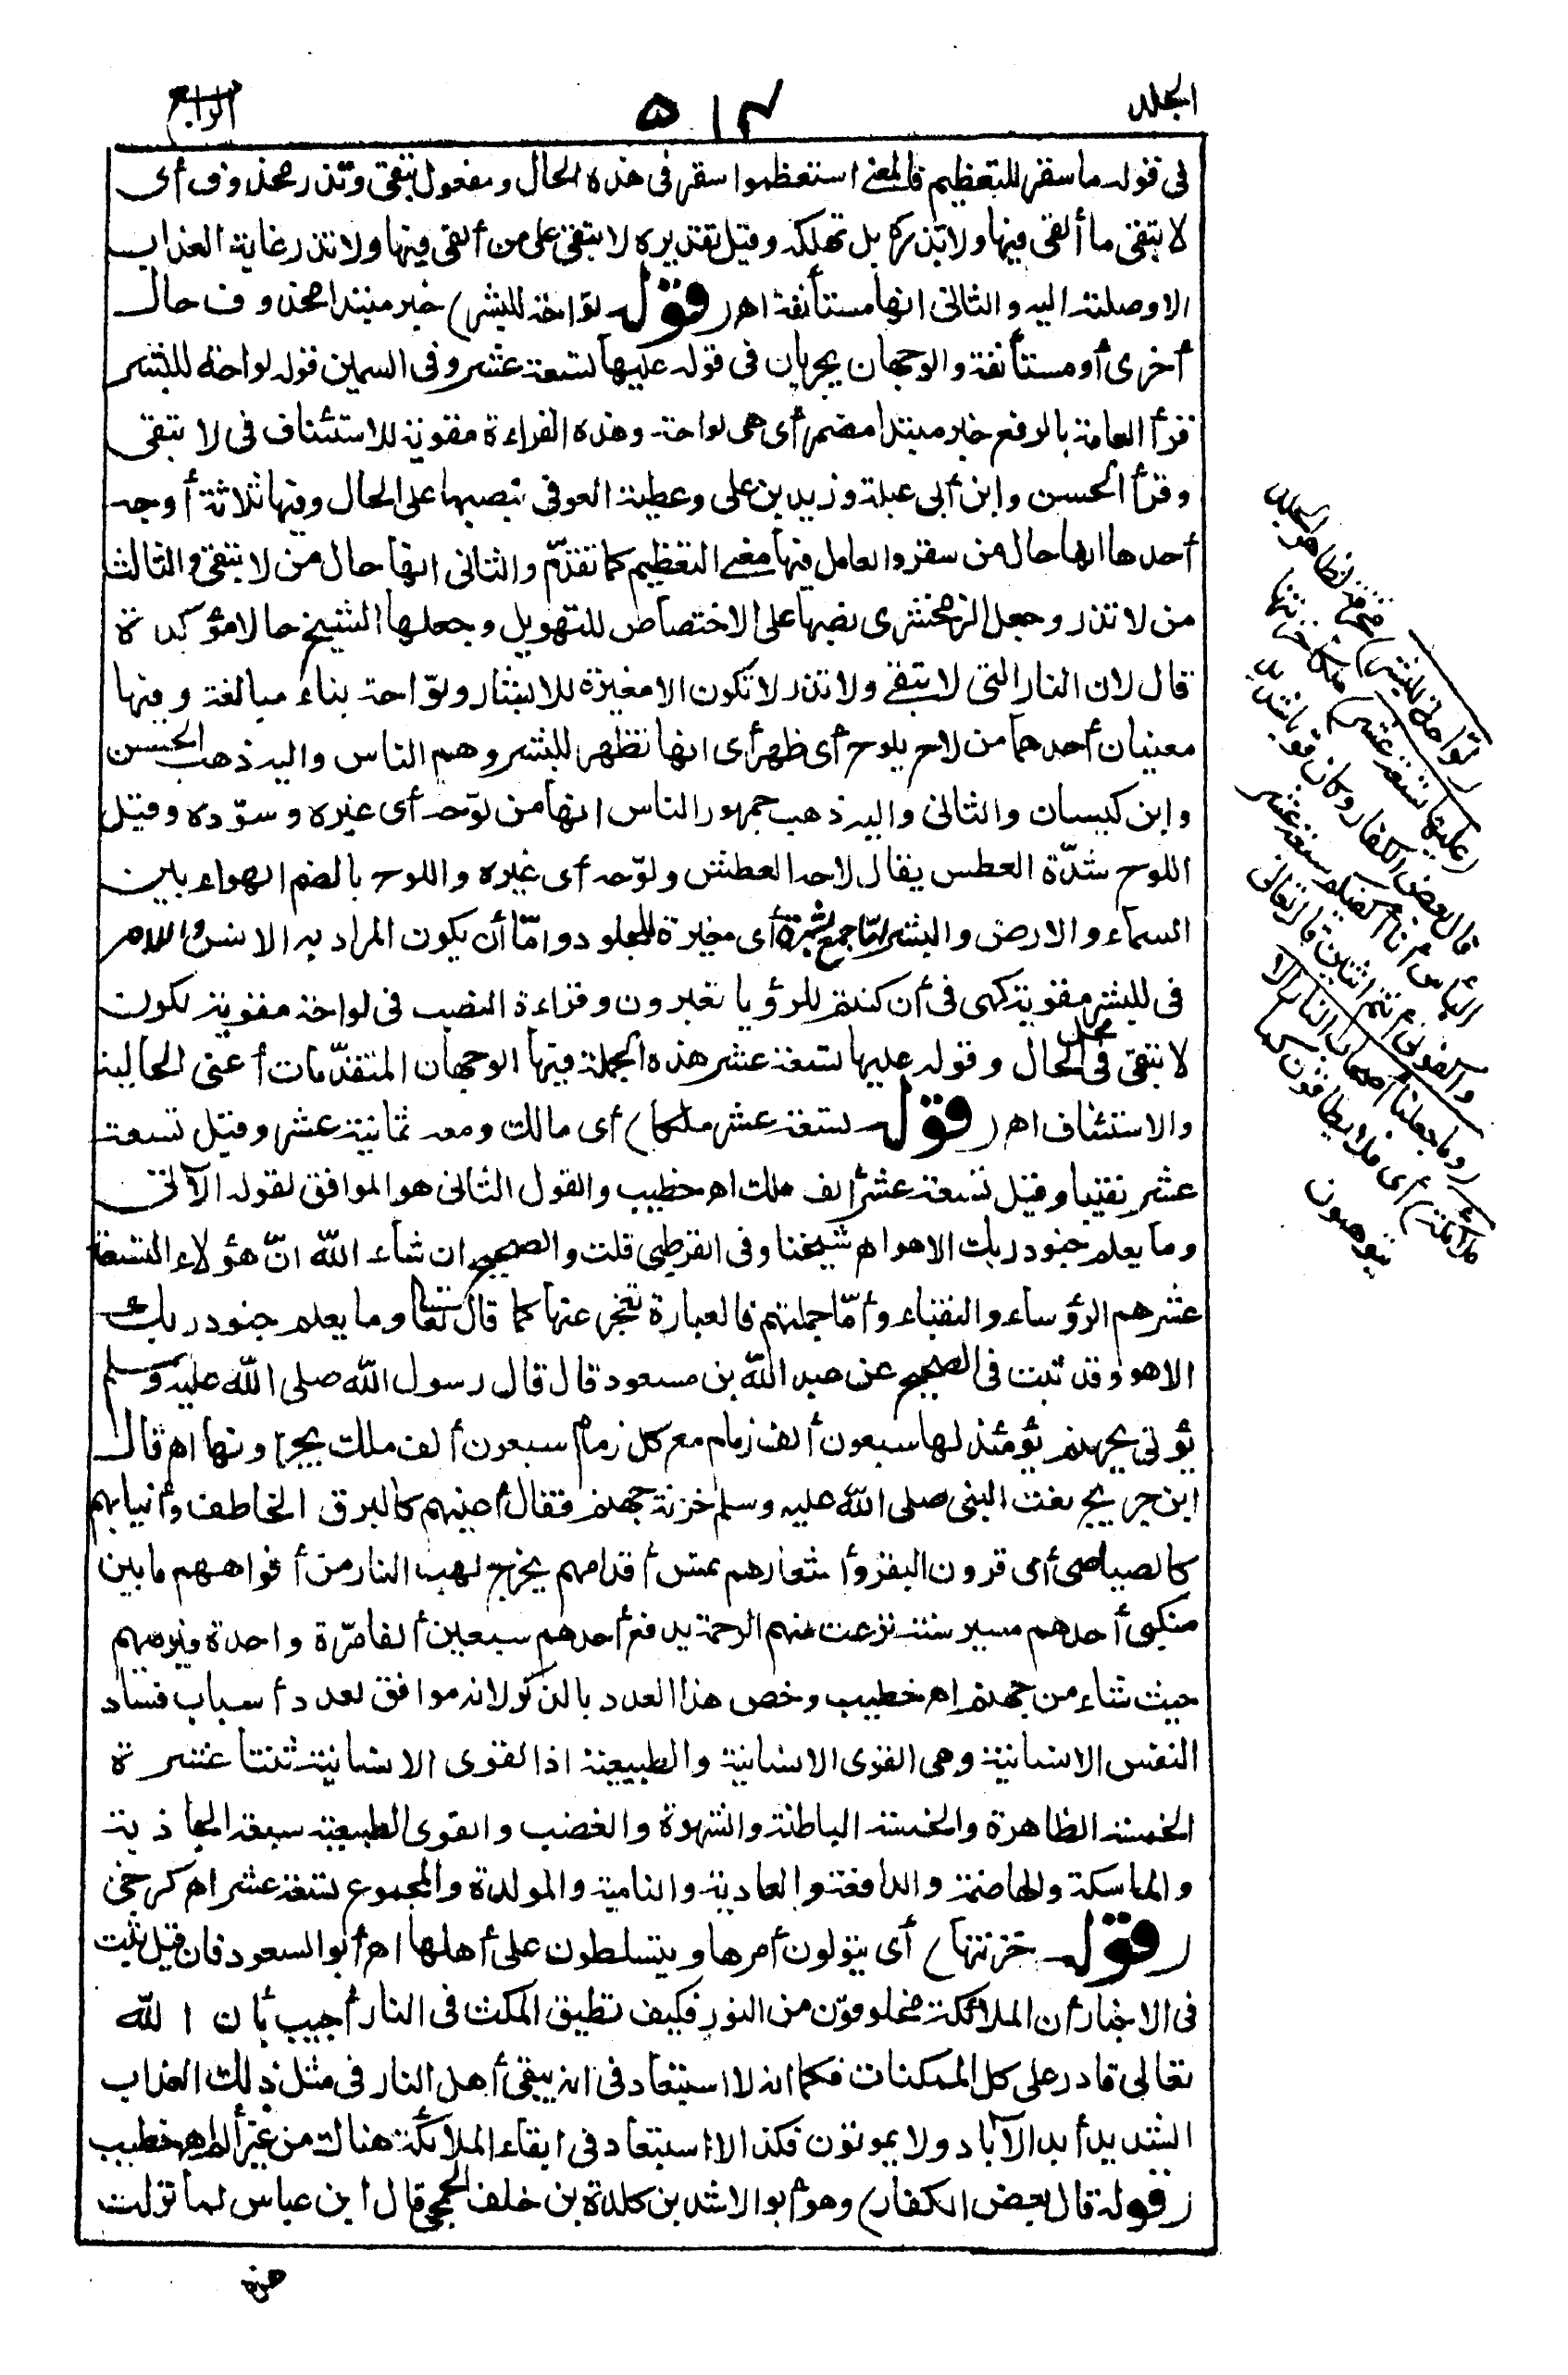 الجلد
٥١٢
الرابع
فى قوله ما سقر للتعظيم فالمعنى استعظموا سقر فى هذه الحال ومفعول تبقى وتذر محذوف أى
لا تبقى ما ألقى فيها ولا تذره بل تهلكه وقيل تقديره لا تبقى على من ألقى فيها ولا تذر غاية العذاب
الا وصلته اليه والثانى انها مستأنفة اهـ (قوله لواحة للبشر) خبر مبتدا محذوف حال
أخرى أو مستأنفة والوجهان يجريان فى قوله عليها تسعة عشر وفى السمين قوله لواحة للبشر
قرأ العامة بالرفع خبر مبتدا مضمر أى هى لواحة وهذه القراءة مقوية للاستئناف فى لا تبقى
وقرأ الحسن وابن أبى عبلة وزيد بن على وعطية العوفى بنصبها على الحال وفيها ثلاثة أوجه
أحدها انها حال من سقر والعامل فيها معنى التعظيم كما تقدّم والثانى انها حال من لا تبقى والثالث
من لا تذر وجعل الزمخشرى نصبها على الاختصاص للتهويل وجعلها الشيخ حالا مؤكدة
قال لان النار التى لا تبقى ولا تذر لا تكون الا مغيرة للابشار ولوّاحة بناء مبالغة وفيها
معنيان أحدهما من لاح يلوح أى ظهر أى انها تظهر للبشر وهم الناس واليه ذهب الحسن
وابن كيسان والثانى واليه ذهب جمهور الناس انها من لوّحه أى غيره وسوّده وقيل
اللوح شدّة العطس يقال لاحه العطش ولوّحه أى غيره واللوح بالضم الهواء بين
السماء والارض والبشر امّا جمع بشرة أى مغيرة للجلود وامّا أن يكون المراد به الانس واللام
فى للبشر مقوية كهى فى أن كنتم للرؤيا تعبرون وقراءة النصب فى لواحة مقوية لكون
لا تبقى فى محل الحال وقوله عليها تسعة عشر هذه الجملة فيها الوجهان المتقدّمان أعنى الحالية
والاستئناف اهـ (قوله تسعة عشر ملكا) أى مالك ومعه ثمانية عشر وقيل تسعة
عشر نقيبا وقيل تسعة عشر ألف ملك اهـ خطيب والقول الثانى هو الموافق لقوله الآتى
وما يعلم جنود ربك الا هو اهـ شيخنا وفى القرطبى قلت والصحيح ان شاء الله انّ هؤلاء التسعة
عشر هم الرؤساء والنقباء وأمّا جملتهم فالعبارة تعجز عنها كما قال تعالى وما يعلم جنود ربك
الا هو وقد ثبت فى الصحيح عن عبد الله بن مسعود قال قال رسول الله صلى الله عليه وسلم
يؤتى بجهنم يومئذ لها سبعون ألف زمام مع كل زمام سبعون ألف ملك يجرّونها اهـ قال
ابن جريج نعت النبى صلى الله عليه وسلم خزنة جهنم فقال أعينهم كالبرق الخاطف وأنيابهم
كالصياصى أى قرون البقر وأشعارهم تمس أقدامهم يخرج لهب النار من أفواههم ما بين
منكبى أحدهم مسير سنة نزعت منهم الرحمة يدفع أحدهم سبعين ألفا مرّة واحدة فيرميهم
حيث شاء من جهنم اهـ خطيب وخص هذا العدد بالذكر لانه موافق لعدد أسباب فساد
النفس الانسانية وهى القوى الانسانية والطبيعية اذ القوى الانسانية ثنتا عشرة
الخمسة الظاهرة والخمسة الباطنة والشهوة والغضب والقوى الطبيعية سبعة الجاذبة
والماسكة والهاضمة والدافعة والغاذية والنامية والمولدة والمجموع تسعة عشر اهـ كرخى
(قوله خزنتها) أى يتولون أمرها ويتسلطون على أهلها اهـ أبو السعود فان قيل ثبت
فى الاخبار أن الملائكة مخلوقون من النور فكيف تطيق المكث فى النار أجيب بأن الله
تعالى قادر على كل الممكنات فكما انه لا استبعاد فى انه يبقى أهل النار فى مثل ذلك العذاب
الشديد أبد الآباد ولا يموتون فكذا لا استبعاد فى ابقاء الملائكة هناك من غير ألم اهـ خطيب
(قوله قال بعض الكفار) وهو أبو الاشد بن كلدة بن خلف الجمحى قال ابن عباس لما نزلت
هذه
(لواحة للبشر) محرقة لظاهر الجلد
(عليها تسعة عشر) ملكا خزنتها
قال بعض الكفار وكان قويا شديد
البأس أنا أكفيكم سبعة عشر
واكفونى أنتم اثنين قال تعالى
(وما جعلنا أصحاب النار الا
ملائكة) أى فلا يطاقون كما
يتوهمون